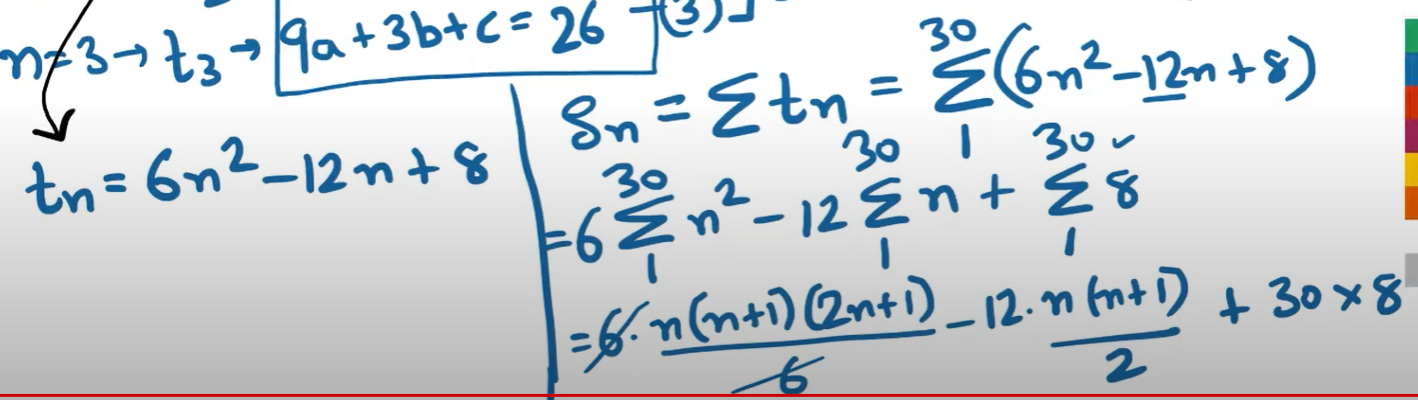 n=3→ t₃ → 9a+3b+c = 26 –(3)
tₙ = 6n² – 12n + 8
Sₙ = Σ tₙ = 30 Σ 1 (6n² – 12n + 8)
= 6 30 Σ 1 n² – 12 30 Σ 1 n + 30 Σ 1 8 ✓
= 6 · n(n+1)(2n+1) / 6 – 12 · n(n+1) / 2 + 30 × 8